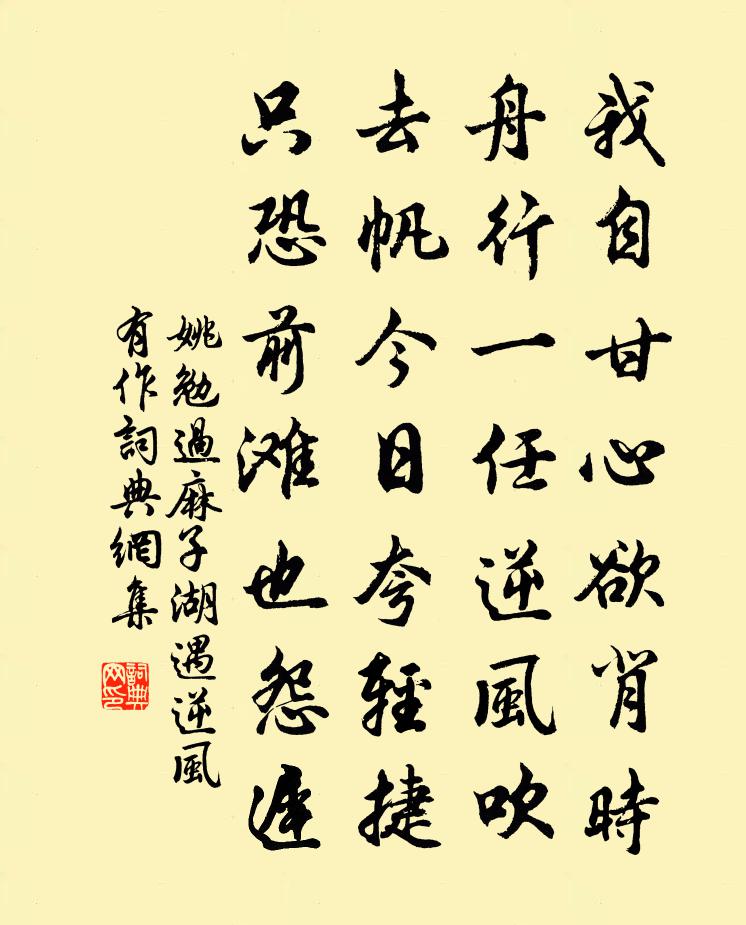 我自甘心欲背時
舟行一任逆風吹
去帆今日夸輕捷
只恐前滩也怨遲
姚勉過麻子湖遇逆風
有作詞典網集
詞典
网印